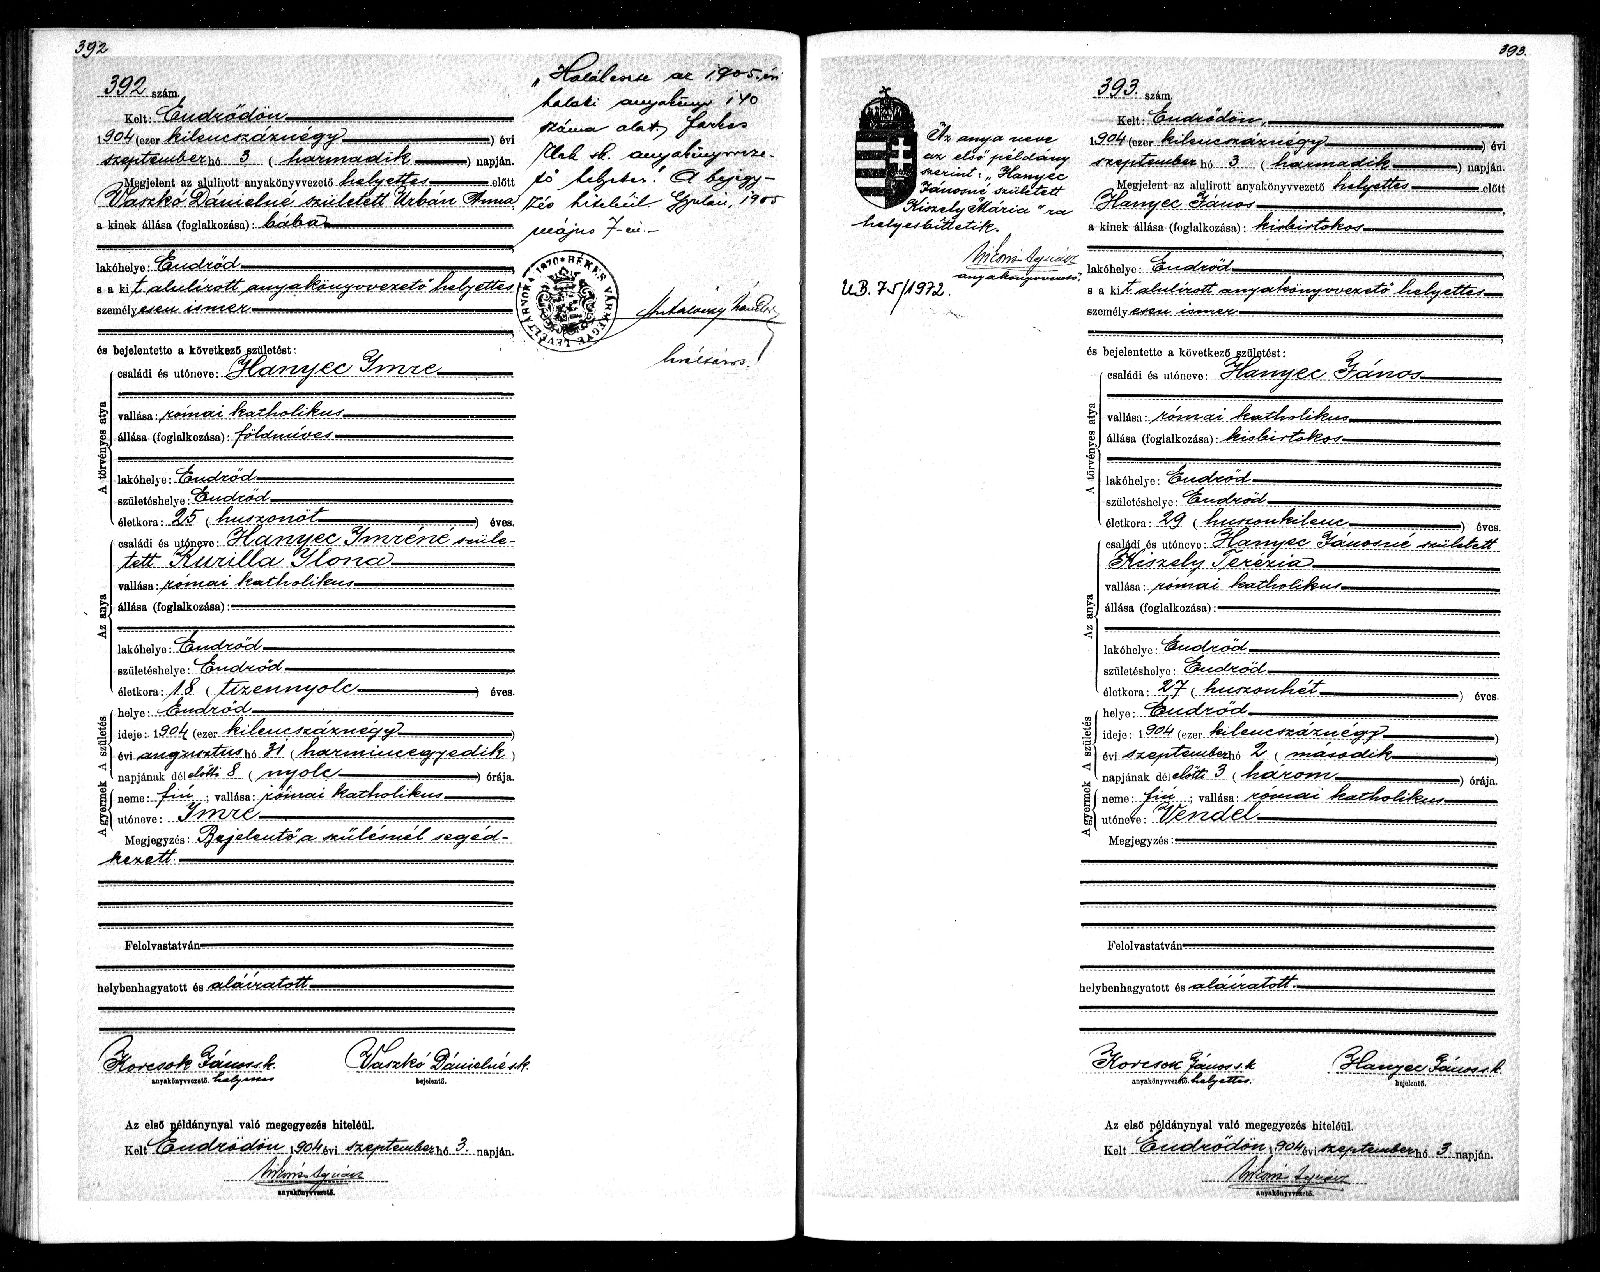 392
392 szám.
Kelt: Endrődön
1904 (ezer kilencszáznégy) évi
szeptember hó 3 (harmadik) napján.
Megjelent az alulirott anyakönyvvezető helyettes előtt
Vaszkó Dánielné született Urbán Anna
a kinek állása (foglalkozása): bába
lakóhelye: Endrőd
s a kit alulirott anyakönyvvezető helyettes
személyesen ismer
és bejelentette a következő születést:
A törvényes atya
családi és utóneve: Hanyec Imre
vallása: római katholikus
állása (foglalkozása): földmíves
lakóhelye: Endrőd
születéshelye: Endrőd
életkora: 25 (huszonöt) éves.
Az anya
családi és utóneve: Hanyec Imréné szüle-
tett Kurilla Ilona
vallása: római katholikus
állása (foglalkozása):
lakóhelye: Endrőd
születéshelye: Endrőd
életkora: 18 (tizennyolc) éves.
A születés
helye: Endrőd
ideje: 1904 (ezer kilencszáznégy)
évi augusztus hó 31 (harmincegyedik)
napjának délelőtti 8 (nyolc) órája.
A gyermek
neme: fiú; vallása: római katholikus
utóneve: Imre
Megjegyzés: Bejelentő a szülésnél segéd-
kezett.
Felolvastatván
helybenhagyatott és aláiratott
Korcsok János s.k. Vaszkó Dánielné s.k.
anyakönyvvezető. helyettes bejelentő.
Az első példánynyal való megegyezés hiteléül.
Kelt Endrődön 1904 évi szeptember hó 3. napján.
anyakönyvvezető.
„Halálesete az 1905. évi
halotti anyakönyv 140
száma alatt Farkas
sk. anyakönyvveze-
tő helyettes! A bejegy-
zés hiteléül. Gyulán, 1905
május 7-én.
BÉKÉS VÁRMEGYE LEVÉLTÁRNOKA 1870
393.
393. szám.
Kelt: Endrődön,
1904 (ezer kilencszáznégy) évi
szeptember hó 3 (harmadik) napján.
Megjelent az alulirott anyakönyvvezető helyettes előtt
Hanyec János
a kinek állása (foglalkozása): kisbirtokos
lakóhelye: Endrőd
s a kit alulirott anyakönyvvezető helyettes
személyesen ismer
és bejelentette a következő születést:
A törvényes atya
családi és utóneve: Hanyec János
vallása: római katholikus
állása (foglalkozása): kisbirtokos
lakóhelye: Endrőd
születéshelye: Endrőd
életkora: 29 (huszonkilenc) éves.
Az anya
családi és utóneve: Hanyec Jánosné született
Kiszely Terézia
vallása: római katholikus
állása (foglalkozása):
lakóhelye: Endrőd
születéshelye: Endrőd
életkora: 27 (huszonhét) éves.
A születés
helye: Endrőd
ideje: 1904 (ezer kilencszáznégy)
évi szeptember hó 2 (második)
napjának délelőtti 3 (három) órája.
A gyermek
neme: fiú; vallása: római katholikus
utóneve: Vendel
Megjegyzés:
Felolvastatván
helybenhagyatott és aláiratott.
Korcsok János s.k. Hanyec János s.k.
anyakönyvvezető. helyettes. bejelentő.
Az első példánynyal való megegyezés hiteléül.
Kelt Endrődön 1904 évi szeptember hó 3. napján.
anyakönyvvezető.
Az anya neve
az első példány
szerint: „Hanyec
Jánosné született
Kiszely Mária" ra
helyesbíttetik.
anyakönyvvezető.
U.B. 75/1972.